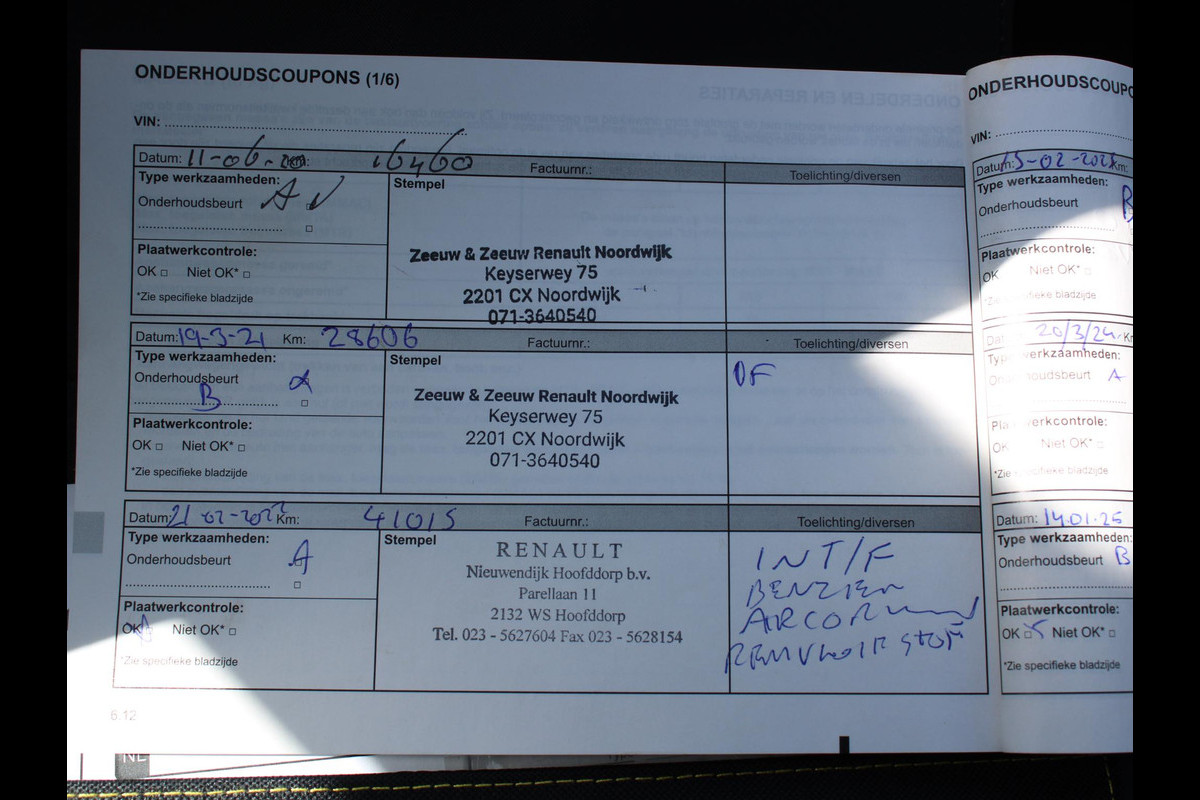 ONDERHOUDSCOUPONS (1/6)
VIN:
Datum: 11-06-20 Km: 16460 Factuurnr.: Toelichting/diversen
Type werkzaamheden: Stempel
Onderhoudsbeurt A
Plaatwerkcontrole:
OK □ Niet OK* □
*Zie specifieke bladzijde
Zeeuw & Zeeuw Renault Noordwijk
Keyserwey 75
2201 CX Noordwijk
071-3640540
Datum: 19-3-21 Km: 28606 Factuurnr.: Toelichting/diversen
Type werkzaamheden: Stempel
Onderhoudsbeurt
B
Plaatwerkcontrole:
OK □ Niet OK* □
*Zie specifieke bladzijde
Zeeuw & Zeeuw Renault Noordwijk
Keyserwey 75
2201 CX Noordwijk
071-3640540
Datum: 21-02-2022 Km: 41015 Factuurnr.: Toelichting/diversen
Type werkzaamheden: Stempel
Onderhoudsbeurt A
Plaatwerkcontrole:
OK Niet OK* □
*Zie specifieke bladzijde
RENAULT
Nieuwendijk Hoofddorp b.v.
Parellaan 11
2132 WS Hoofddorp
Tel. 023 - 5627604 Fax 023 - 5628154
INT/F
6.12
NL
ONDERHOUDSCOUPO
VIN:
Datum: 15-02-202 Km:
Type werkzaamheden:
Onderhoudsbeurt B
Plaatwerkcontrole:
OK Niet OK* □
*Zie specifieke bladzijde
Dat 20/3/24 K
Type werkzaamheden:
Onderhoudsbeurt A
Plaatwerkcontrole:
OK Niet OK* □
*Zie specifieke bladzijde
Datum: 14.01.25
Type werkzaamheden:
Onderhoudsbeurt B
Plaatwerkcontrole:
OK □ Niet OK* □
*Zie specifieke bladzijde